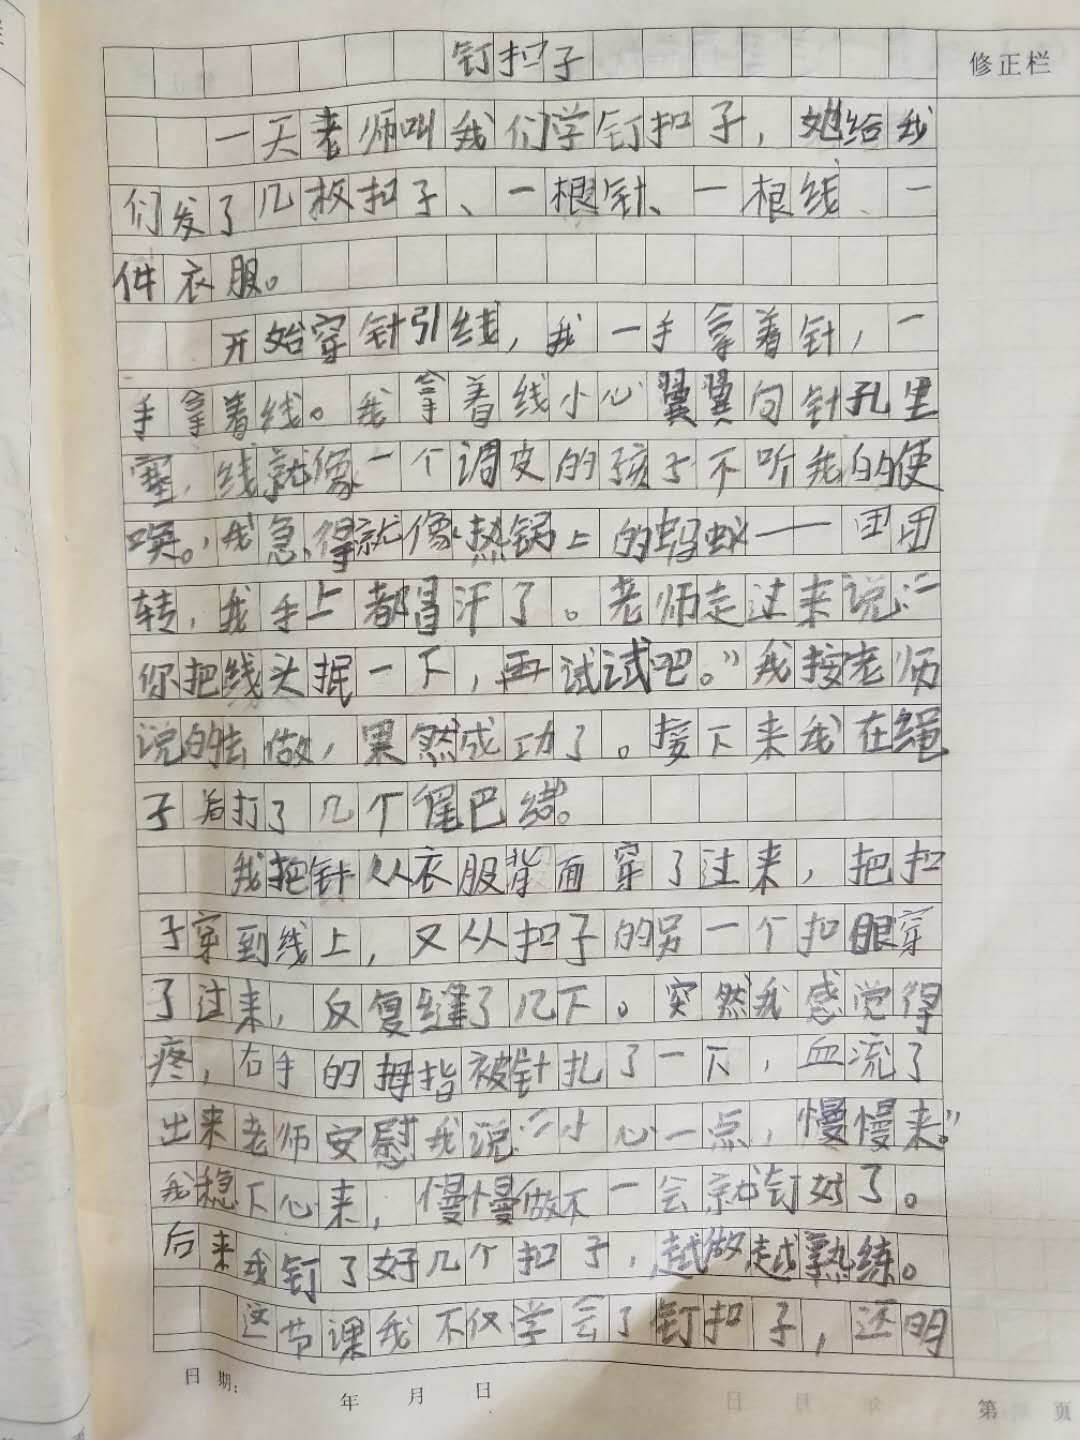 钉扣子
修正栏
一天老师叫我们学钉扣子，她给我
们发了几枚扣子、一根针、一根线、一
件衣服。
开始穿针引线，我一手拿着针，一
手拿着线。我拿着线小心翼翼向针孔里
塞，线就像一个调皮的孩子不听我的使
唤。，我急得就像热锅上的蚂蚁——团团
转，我手上都冒汗了。老师走过来说：“
你把线头抿一下，再试试吧。”我按老师
说的去做，果然成功了。接下来我在绳
子后打了几个尾巴结。
我把针从衣服背面穿了过来，把扣
子穿到线上，又从扣子的另一个扣眼穿
了过来，反复缝了几下。突然我感觉得
疼，右手的拇指被针扎了一下，血流了
出来老师安慰我说：“小心一点，慢慢来。”
我稳下心来，慢慢做不一会就钉好了。
后来我钉了好几个扣子，越做越熟练。
这节课我不仅学会了钉扣子，还明
日期： 年 月 日
第 页